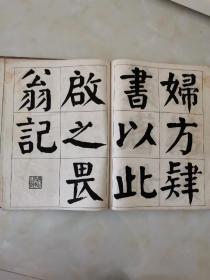 婦方肄
書以此
啟之畏
翁記